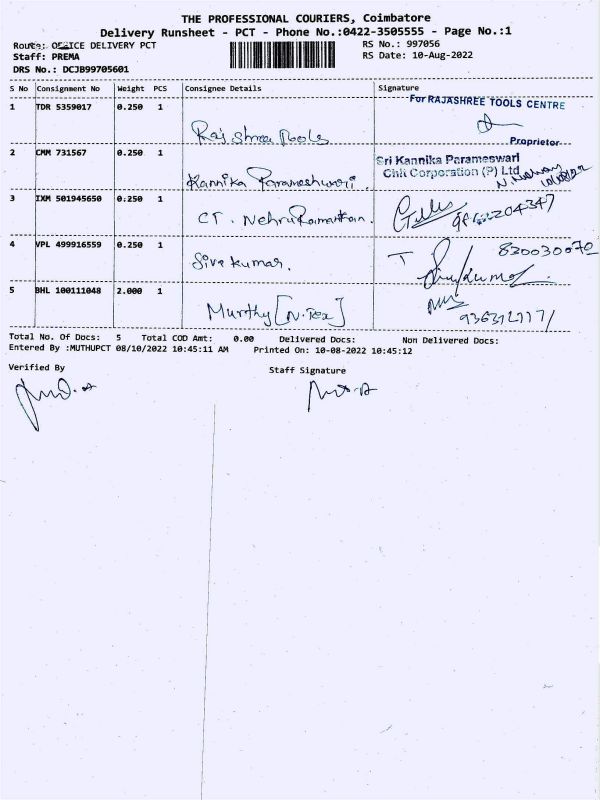 THE PROFESSIONAL COURIERS, Coimbatore
Delivery Runsheet - PCT - Phone No.:0422-3505555 - Page No.:1
Route: OFFICE DELIVERY PCT
RS No.: 997056
Staff: PREMA
RS Date: 10-Aug-2022
DRS No.: DCJB99705601
S No Consignment No Weight PCS Consignee Details Signature
For RAJASHREE TOOLS CENTRE
1 TDR 5359017 0.250 1
Raj shree Tools
Proprietor
2 CMM 731567 0.250 1
Sri Kannika Parameswari
Chit Corporation (P) Ltd
Kannika Parameshwari.
3 IXM 501945650 0.250 1
CT. Nehru
4 VPL 499916559 0.250 1
820030070
Siva kumar.
5 BHL 100111048 2.000 1
Murthy [N.Tex]
Total No. Of Docs: 5 Total COD Amt: 0.00 Delivered Docs: Non Delivered Docs:
Entered By :MUTHUPCT 08/10/2022 10:45:11 AM Printed On: 10-08-2022 10:45:12
Verified By
Staff Signature